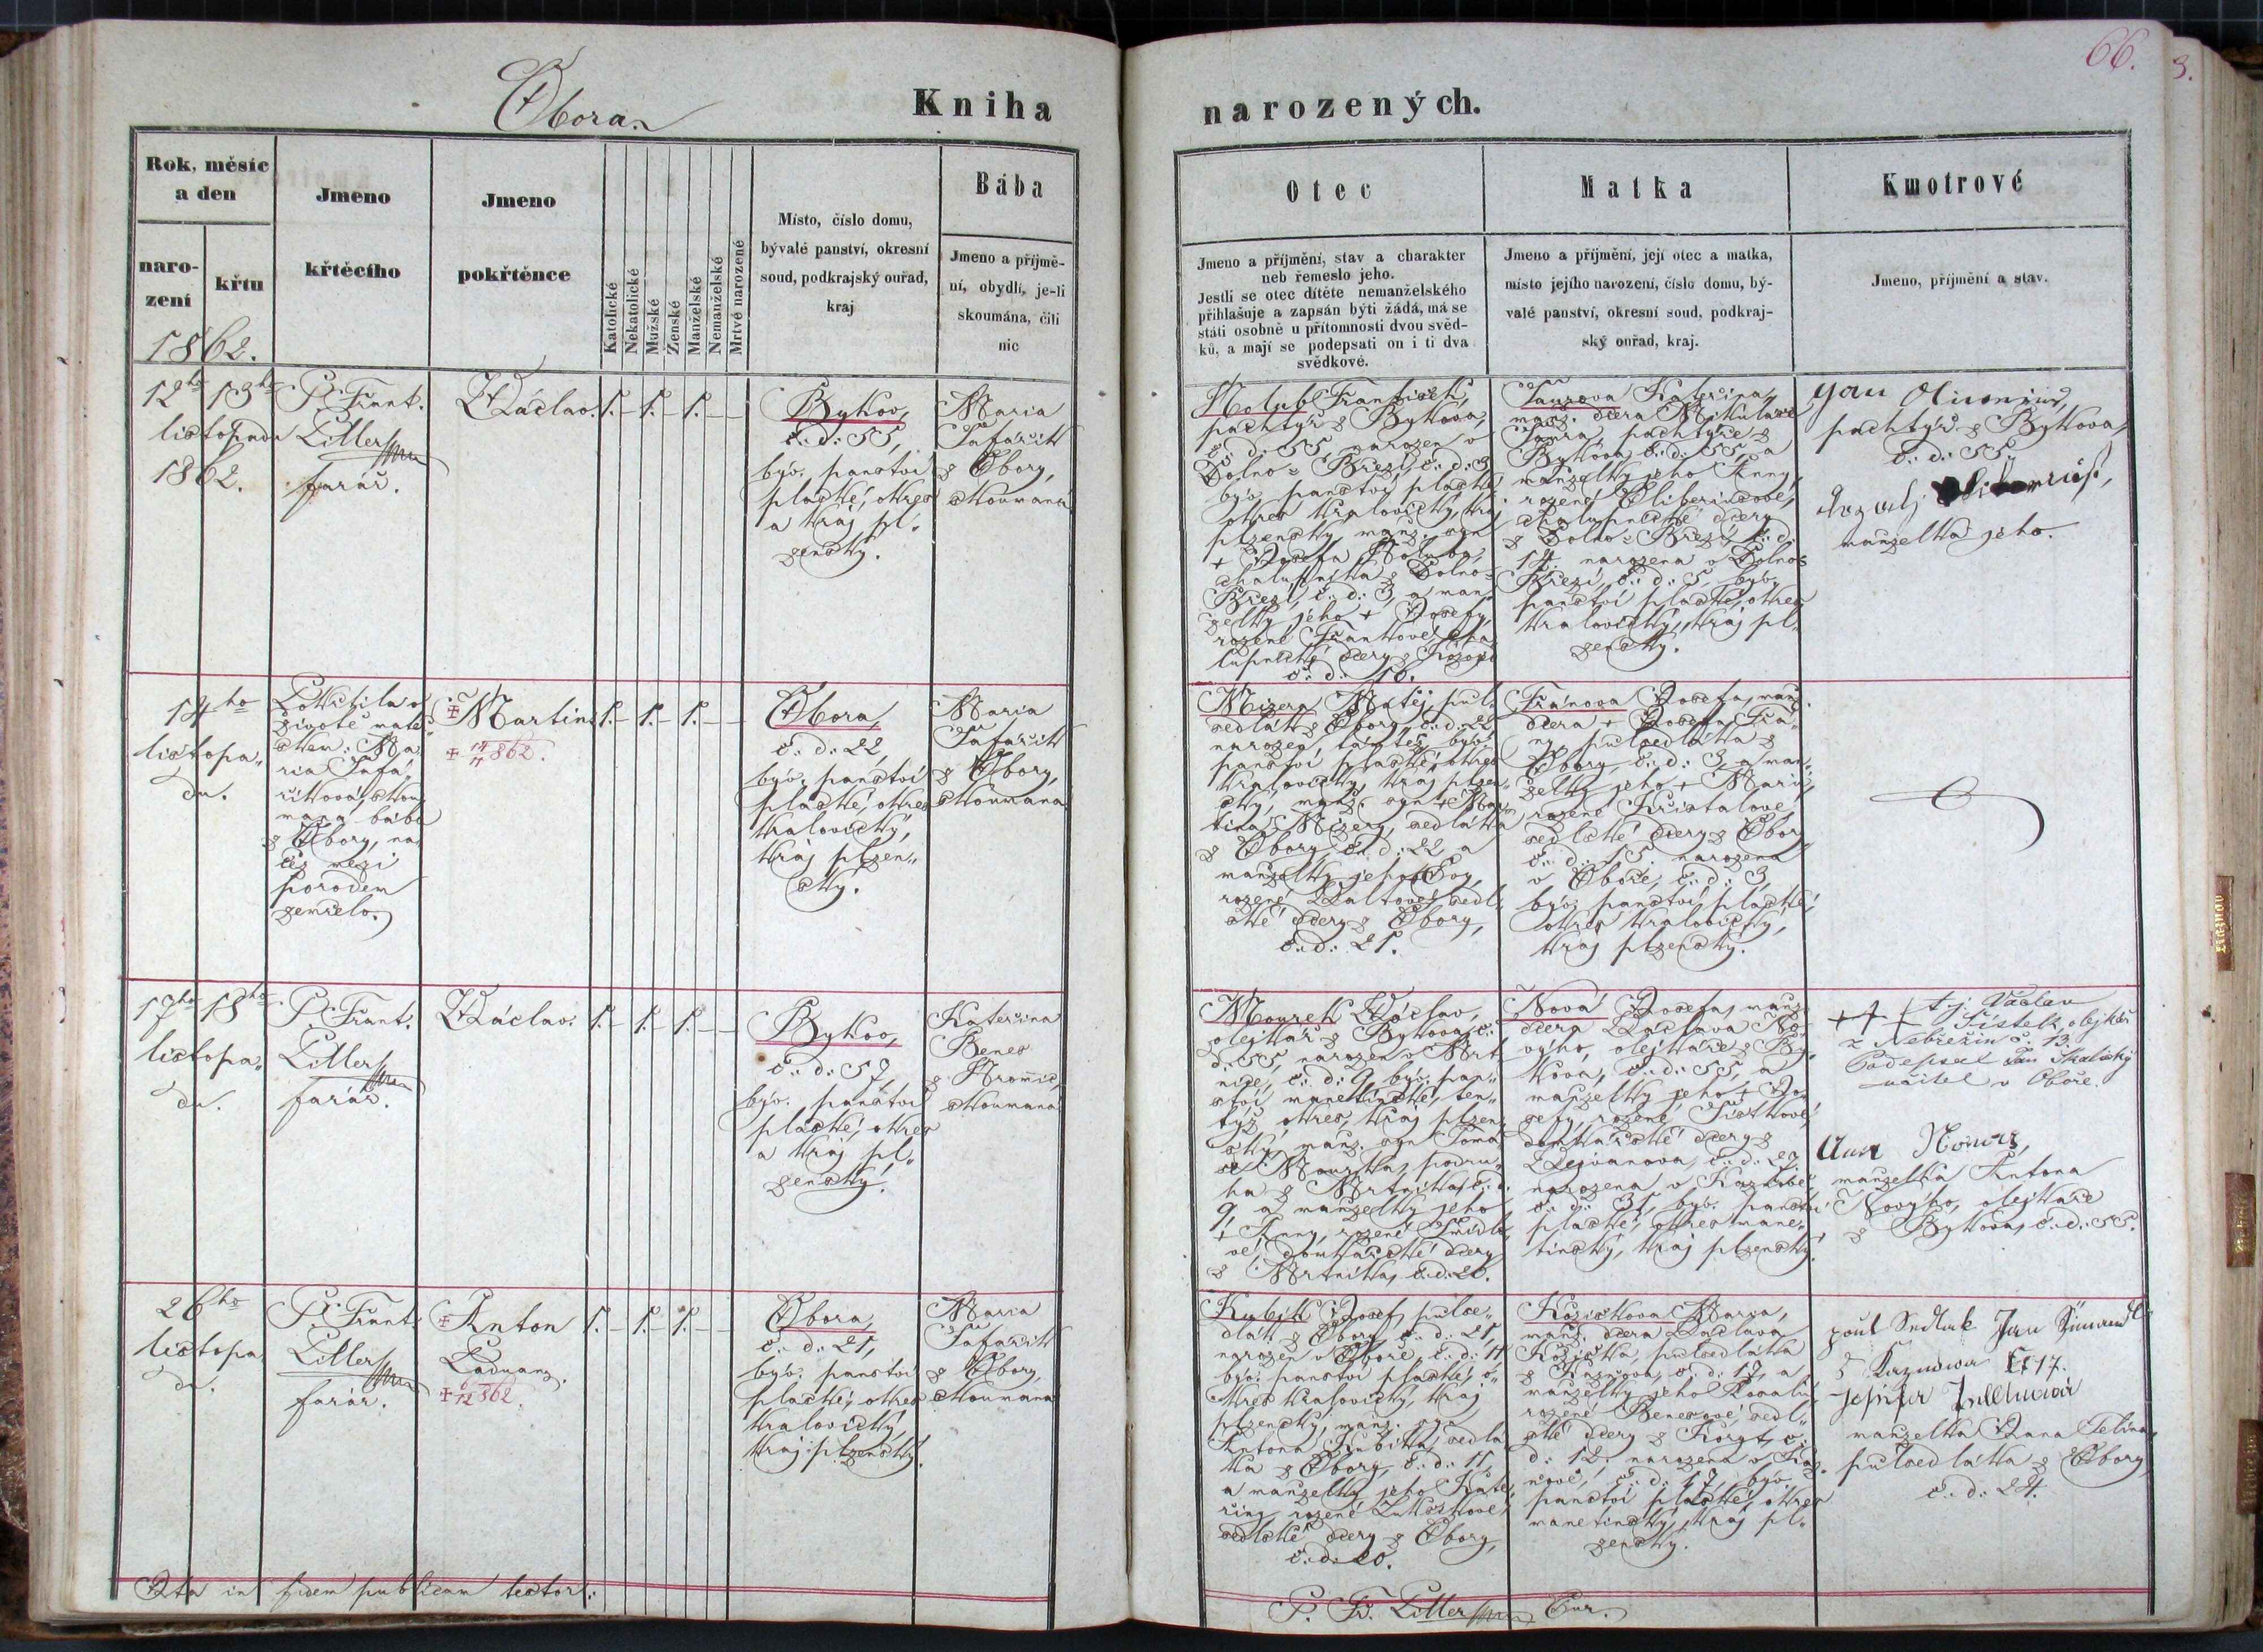 66.
3.
Obora.
Kniha
narozených.
Rok, měsíc
a den
naro-
zení
křtu
1862.
Jmeno
křtěcího
Jmeno
pokřtěnce
Katolické
Nekatolické
Mužské
Ženské
Manželské
Nemanželské
Mrtvě narozené
Místo, číslo domu,
bývalé panství, okresní
soud, podkrajský ouřad,
kraj
Bába
Jmeno a příjmě-
ní, obydlí, je-li
skoumána, čili
nic
Otec
Jmeno a příjmění, stav a charakter
neb řemeslo jeho.
Jestli se otec dítěte nemanželského
přihlašuje a zapsán býti žádá, má se
státi osobně u přítomnosti dvou svěd-
ků, a mají se podepsati on i ti dva
svědkové.
Matka
Jmeno a příjmění, její otec a matka,
místo jejího narození, číslo domu, bý-
valé panství, okresní soud, podkraj-
ský ouřad, kraj.
Kmotrové
Jmeno, příjmění a stav.
12ho 13ho
listopadu
1862.
P. Frant.
Litler
farář.
Wáclav.
1. – 1. – 1. – –
Bykov,
č. d. 55,
býv. panství
plaské, okres
a kraj pl-
zenský.
Maria
Šafařík
z Obory,
skoumaná
Holub František,
pachtýř z Bykova,
č. d. 55, narozen v
Dolno-Březí, č. d. 3,
býv. panství plaské,
okres kralovický, kraj
plzenský, manž. syn
+ Josefa Holuba,
chalupníka z Dolno-
Březí, č. d. 3, a man-
želky jeho + Josefy,
rozené Frankové, cha-
lupnické dcery z
č. d. 10.
Kateřina,
manž. dcera Mikuláše
pachtýře z
Bykova, č. d. 55, a
manželky jeho Anny,
rozené
chalupnické dcery
z Dolno-Březí, č. d.
14. narozena v Dolno-
Březí, č. d. 5, býv.
panství plaské, okres
kralovický, kraj pl-
zenský.
Jan
pachtýř z Bykova,
č. d. 55.
manželka jeho.
14ho
listopa-
du.
života mate
Ma-
ria Šafa-
říková, skou-
maná bába
z Obory, na-
čež mezi
porodem
zemřelo.
+ Martin
+ 14/11 862.
1. – 1. – 1. – –
Obora,
č. d. 22,
býv. panství
plaské, okres
kralovický,
kraj plzen-
ský.
Maria
Šafařík
z Obory,
skoumaná
Mizera, Matěj, půl-
sedlák z Obory, č. d. 22,
narozen tamtéž, býv.
panství plaské, okres
kralovický, kraj plzen-
ský, manž. syn + Mar-
tina Mizery, sedláka
z Obory, č. d. 22 a
manželky jeho
rozené sedl-
ské dcery z Obory,
č. d. 21.
Fránova Josefa, manž.
dcera + Josefa Frá-
ny půlsedláka z
Obory, č. d. 3, a man-
želky jeho + Marie,
rozené Křistalové,
sedlské dcery z Obory
č. d. 15. narozena
v Oboře, č. d. 3,
býv. panství plaské,
okres kralovický,
kraj plzenský.
17ho 18ho
listopa-
du.
P. Frant.
Litler
farář.
Wáclav.
1. – 1. – 1. – –
Bykov,
č. d. 57,
býv. panství
plaské, okres
a kraj pl-
zenský.
Kateřina
Beneš
z Hromic,
skoumaná
Mourek Wáclav,
olejkář z Bykova, č.
d. 55, narozen v Mrt-
níce, č. d. 9, býv. pan-
ství manetínské, ten-
týž okres, kraj plzen-
ský, manž. syn Tomá-
še Mourka, podru-
ha z Mrtníka, č. d.
9, a manželky jeho
+ Anny, rozené Šmídlo-
vé, domkářské dcery
z Mrtníka, č. d. 20.
Nová Josefa, manž.
dcera Wáclava No-
výho, olejkáře z By-
kova, č. d. 55, a
manželky jeho + Jo-
sefy, rozené Šístkové,
domkářské dcery z
č. d. 29.
narozena v Kaznově,
č. d. 31, býv. panství
plaské, okres mane-
tínský, kraj plzenský.
+++ t. j. Václav
Šístek, olejkář
z Nebřezin č. 13.
Podepsal Jan Skalický
učitel v Oboře.
Anna
manželka Antona
Novýho, olejkáře
z Bykova, č. d. 55.
26ho
listopa-
du.
P. Frant.
Litler
farář.
+ Anton
+ 6/12 862.
1. – 1. – 1. – –
Obora,
č. d. 21,
býv. panství
plaské, okres
kralovický,
kraj plzenský.
Maria
Šafařík
z Obory,
skoumaná
Kubík Josef, půlse-
dlák z Obory, č. d. 21,
narozen v Oboře, č. d. 11,
býv. panství plaské, o-
kres kralovický, kraj
plzenský, manž. syn
Antona Kubíka, sedlá-
ka z Obory, č. d. 11,
a manželky jeho Kate-
řiny, rozené Lukeškové,
sedlské dcery z Obory,
č. d. 20.
Maria,
manž. dcera Wáclava
půlsedláka
z Kaznova, č. d. 17, a
manželky jeho Rosalie,
rozené Benešové, sedl-
ské dcery z
d. 12. narozena v Kaz-
nově, č. d. 17, býv.
panství plaské, okres
manetínský, kraj pl-
zenský.
Jan
17.
manželka Jana
půlsedláka z Obory
č. d. 24.
Ita in fidem publicam testor:
P. Fr. Litler Cur.
Kaznov